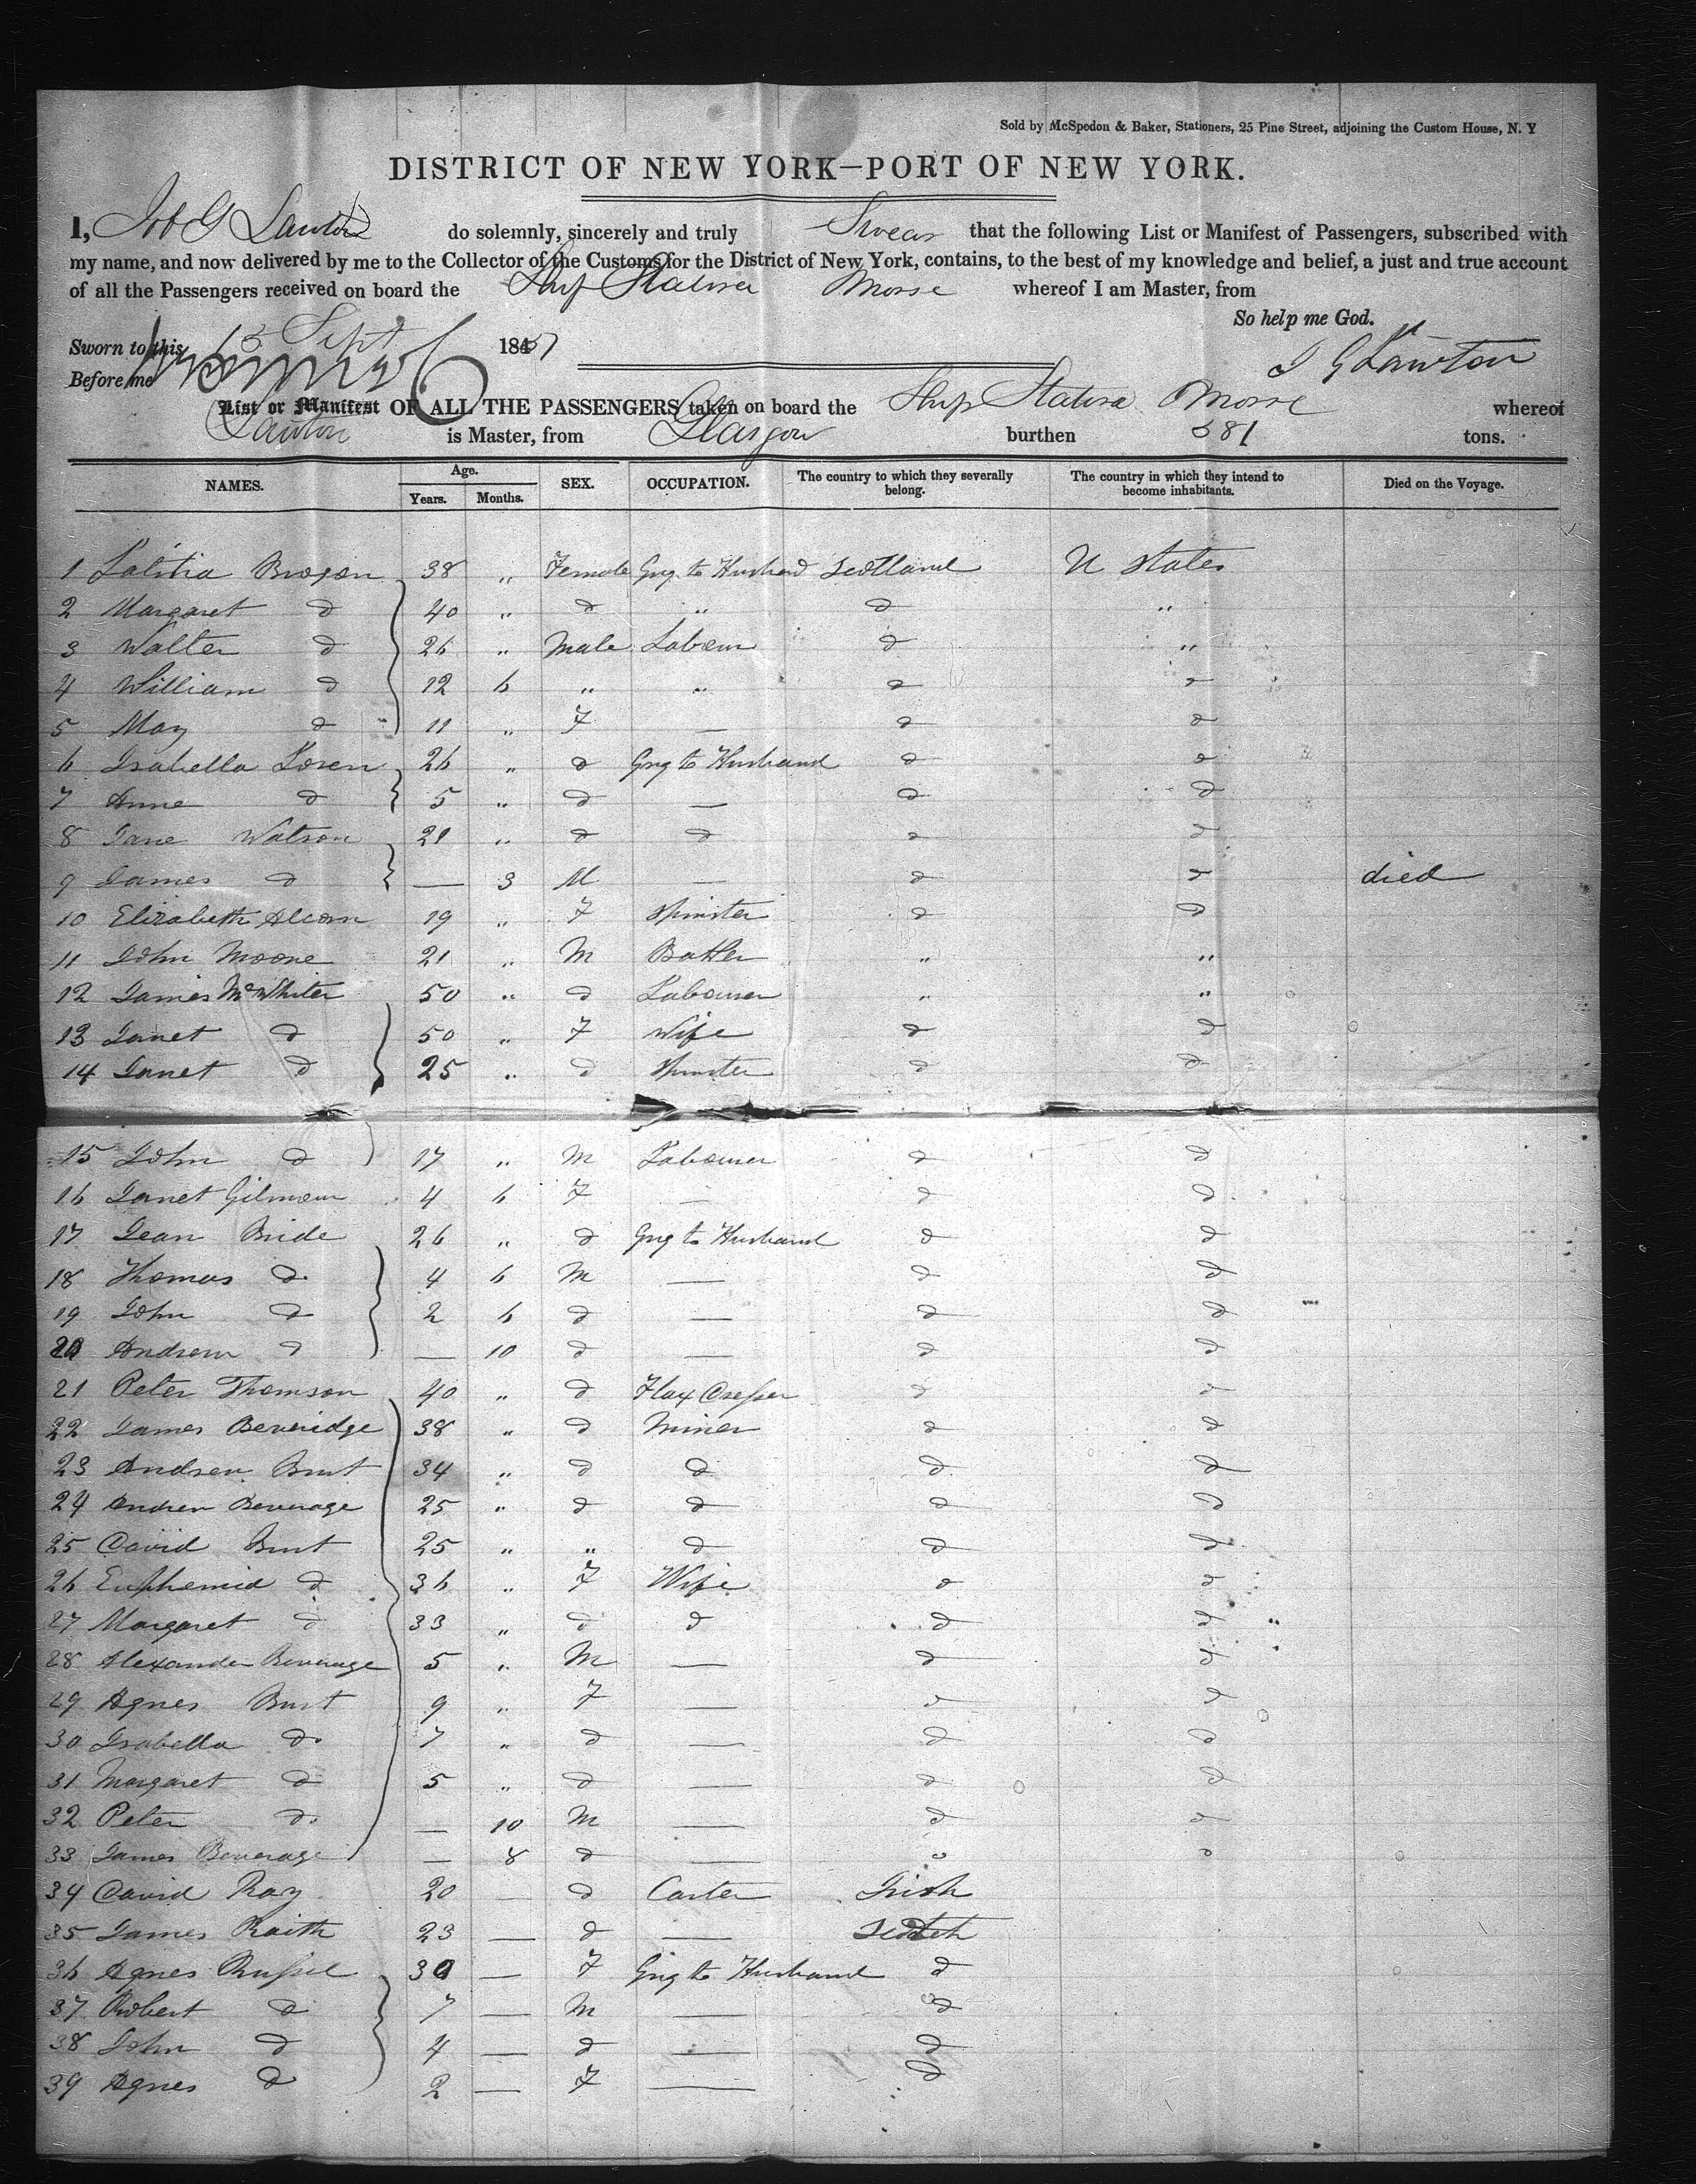 Sold by McSpedon & Baker, Stationers, 25 Pine Street, adjoining the Custom House, N. Y
DISTRICT OF NEW YORK—PORT OF NEW YORK.
I, Job G Lawton do solemnly, sincerely and truly Swear that the following List or Manifest of Passengers, subscribed with
my name, and now delivered by me to the Collector of the Customs for the District of New York, contains, to the best of my knowledge and belief, a just and true account
of all the Passengers received on board the Ship Statira Morse whereof I am Master, from
So help me God.
Sworn to this 13 Sept 1851
Before me J G Lawton
List or Manifest OF ALL THE PASSENGERS taken on board the Ship Statira Morse whereof
Lawton is Master, from Glasgow burthen 581 tons.
NAMES. Age. Years. Months. SEX. OCCUPATION. The country to which they severally belong. The country in which they intend to become inhabitants. Died on the Voyage.
1 Latitia Brogan 38 " Female Gng to Husband Scotland U States
2 Margaret d 40 " d " d "
3 Walter d 26 " Male Labour d "
4 William d 12 6 " " d d
5 May d 11 " F — d d
6 Isabella Loren 26 " d Gng to Husband d d
7 Anne d 5 " d — d d
8 Jane Watson 21 " d d d d
9 James d — 3 M — d d died
10 Elizabeth Alcorn 19 " F Spinster d d
11 John Moore 21 " M Butler " "
12 James McWhiter 50 " d Labourer " "
13 Janet d 50 " F Wife d d
14 Janet d 25 " d Spinster d d
15 John d 17 " M Labourer d d
16 Janet Gilmour 4 6 F — d d
17 Jean Bride 26 " d Gng to Husband d d
18 Thomas d 4 6 M — d d
19 John d 2 6 d — d d
20 Andrew d — 10 d — d d
21 Peter Thomson 40 " d Flax Dresser d d
22 James Beveridge 38 " d Miner d d
23 Andrew Burt 34 " d d d d
24 Andrew Beverage 25 " d d d d
25 David Burt 25 " " d d d
26 Euphemia d 36 " F Wife d d
27 Margaret d 33 " d d d d
28 Alexander Beverage 5 " M — d d
29 Agnes Burt 9 " F — d d
30 Isabella do 7 " d — d d
31 Margaret d 5 " d — d d
32 Peter do — 10 M — d d
33 James Beverage — 8 d — " "
34 David Ray 20 — d Carter Irish
35 James Raith 23 — d — Scotch
36 Agnes Russel 30 — F Gng to Husband d
37 Robert d 7 — M — d
38 John d 4 — d — d
39 Agnes d 2 — F — d